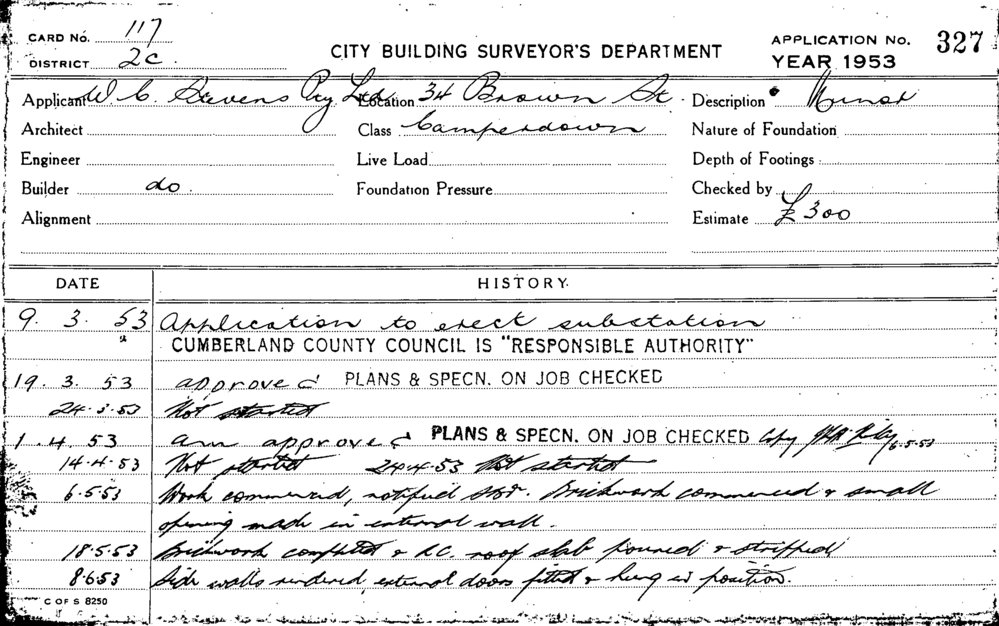 CARD No. 117
DISTRICT 2C.
CITY BUILDING SURVEYOR'S DEPARTMENT
APPLICATION No. 327
YEAR 1953
Applicant W. C. Stevens Pty Ltd Location 34 Brown St. Description Minor
Architect Class Camperdown Nature of Foundation
Engineer Live Load Depth of Footings
Builder do. Foundation Pressure Checked by
Alignment Estimate £300
DATE HISTORY.
9. 3. 53 Application to erect substation
CUMBERLAND COUNTY COUNCIL IS "RESPONSIBLE AUTHORITY"
19. 3. 53 approved PLANS & SPECN. ON JOB CHECKED
24.3.53 Not started
1. 4. 53 am approved PLANS & SPECN. ON JOB CHECKED Copy 6.5.53
14.4.53 Not started 24.4.53 Not started
6.5.53 Work commenced, notified Brickwork commenced & small
opening made in external wall.
18.5.53 Brickwork completed & R.C. roof slab poured & stripped
8.6.53 Side walls rendered, external doors fitted & hung in position.
C OF S 8250